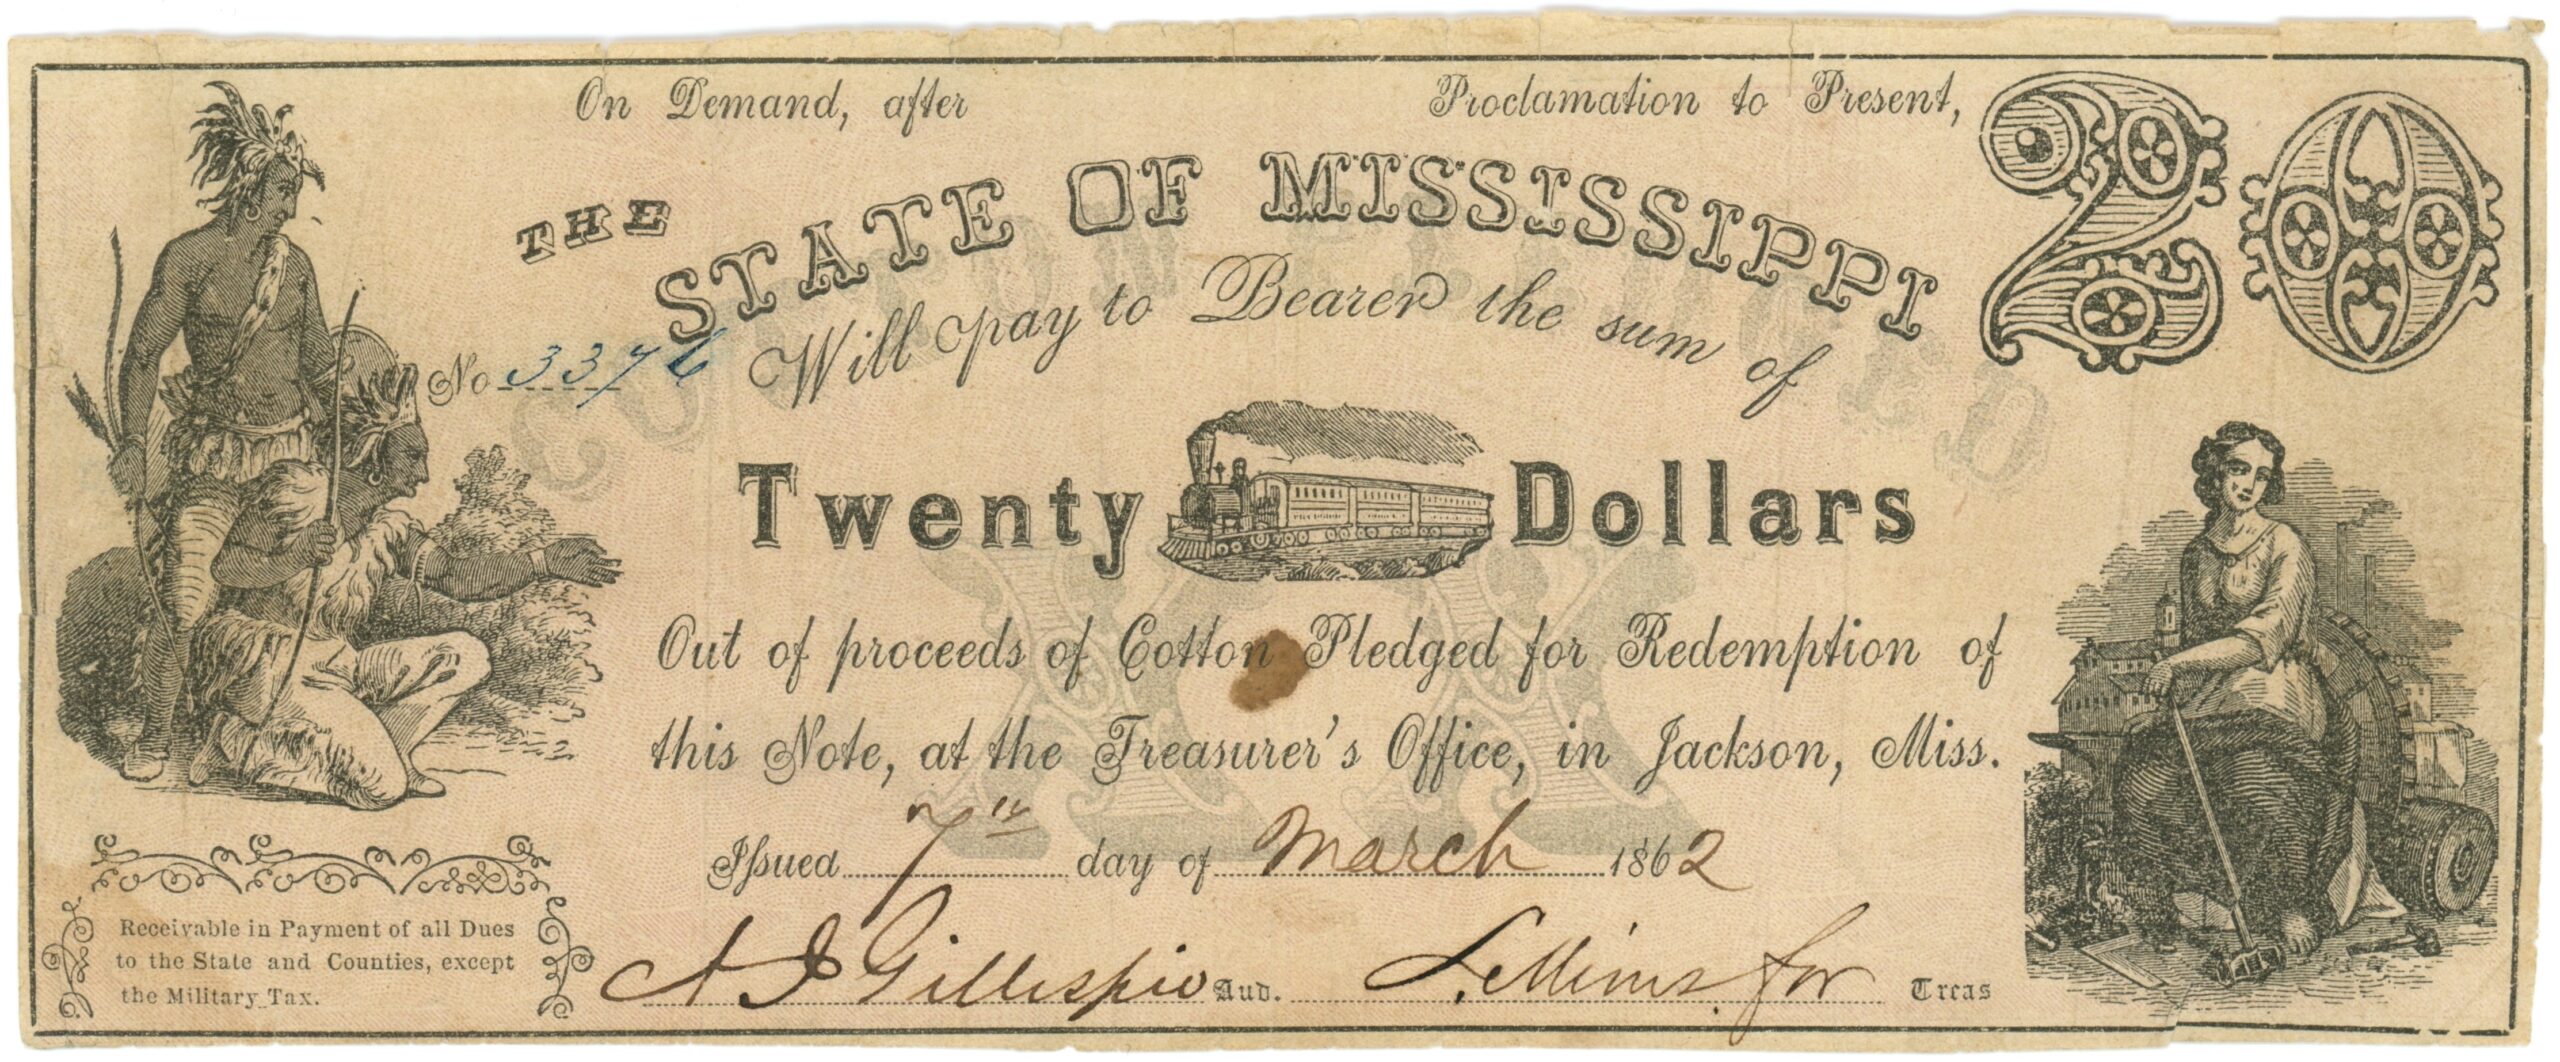 On Demand, after Proclamation to Present,
20
THE STATE OF MISSISSIPPI
No 3376 Will pay to Bearer the sum of
COTTON PLEDGED
Twenty Dollars
XX
Out of proceeds of Cotton Pledged for Redemption of
this Note, at the Treasurer's Office, in Jackson, Miss.
Issued 7th day of March 1862
A J Gillespie Aud. for Treas
Receivable in Payment of all Dues
to the State and Counties, except
the Military Tax.